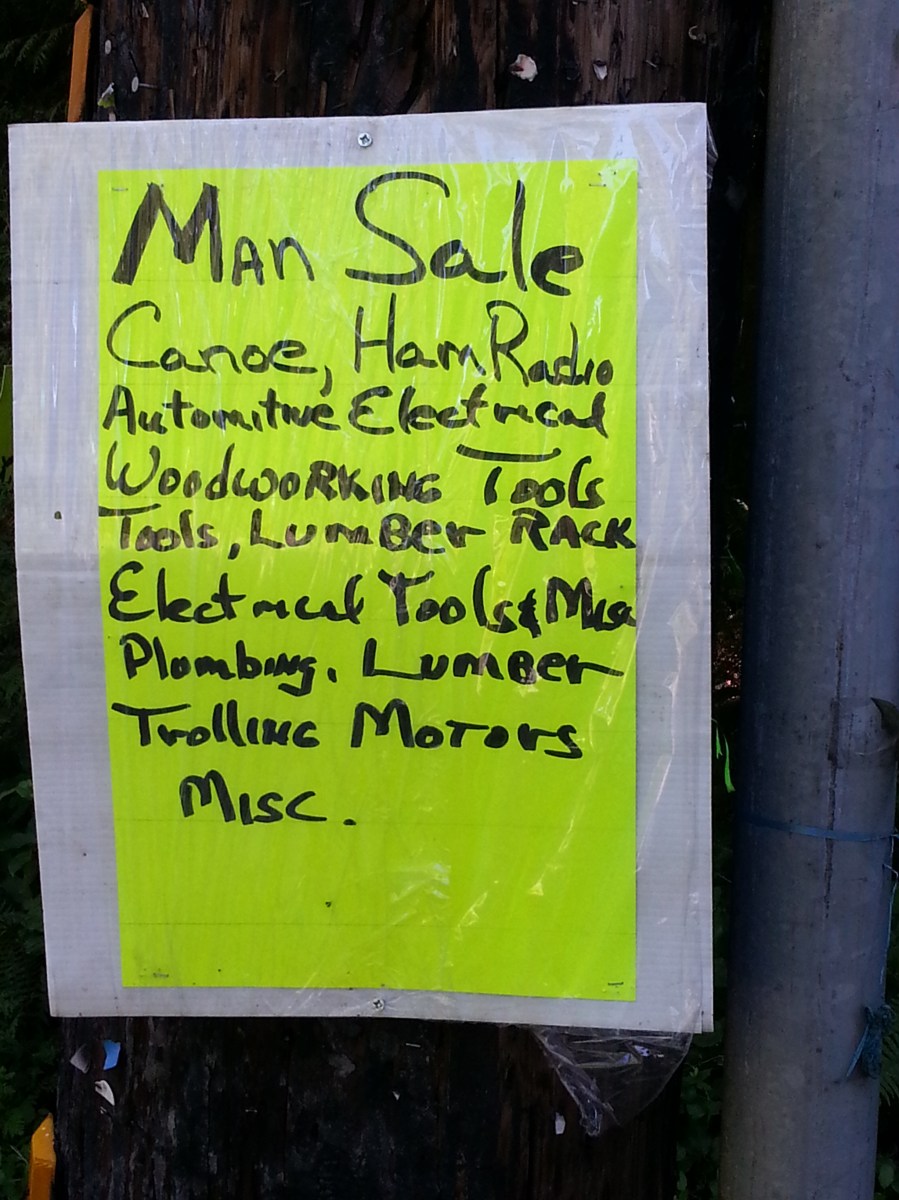 Man Sale
Canoe, Ham Radio
Automitive Electrical
Woodworking Tools
Tools, Lumber Rack
Electrical Tools & Misc
Plombing. Lumber
Trolling Motors
Misc.